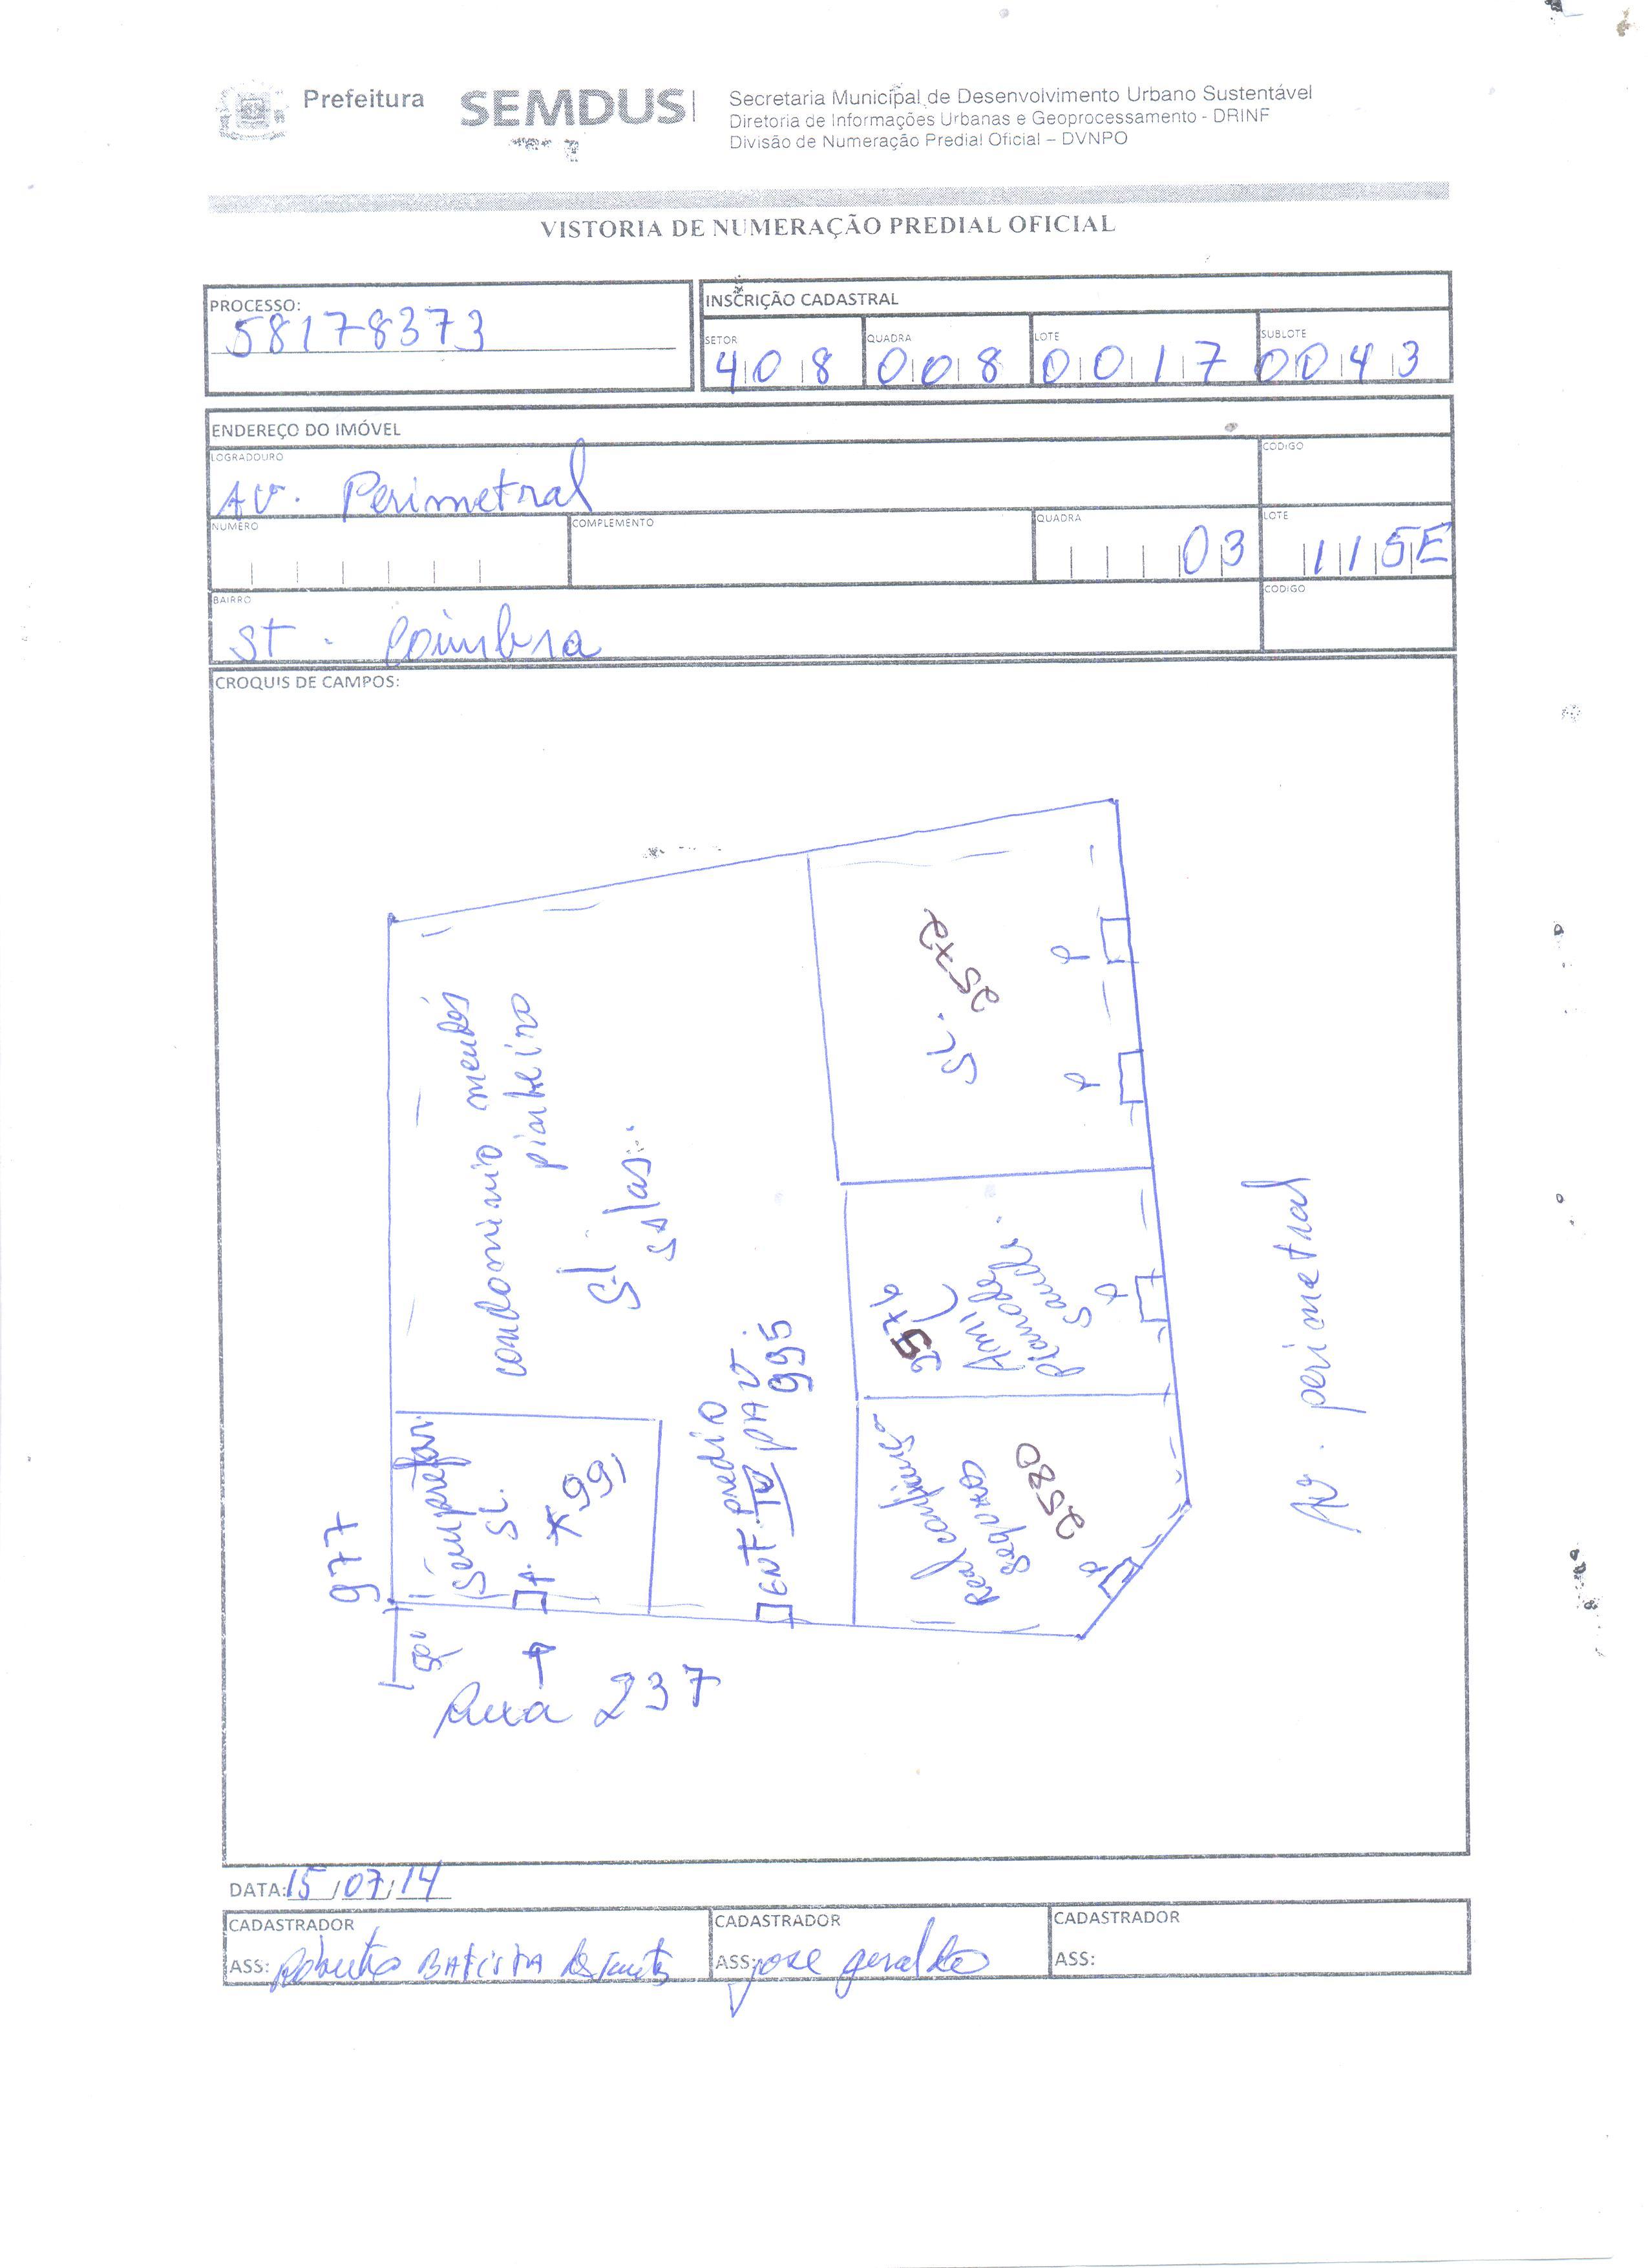 Prefeitura
SEMDUS
Secretaria Municipal de Desenvolvimento Urbano Sustentável
Diretoria de Informações Urbanas e Geoprocessamento - DRINF
Divisão de Numeração Predial Oficial – DVNPO
VISTORIA DE NUMERAÇÃO PREDIAL OFICIAL
PROCESSO:
58178373
INSCRIÇÃO CADASTRAL
SETOR QUADRA LOTE SUBLOTE
408 008 0017 0043
ENDEREÇO DO IMÓVEL
LOGRADOURO CODIGO
AV. Perimetral
NUMERO COMPLEMENTO QUADRA LOTE
03 115E
BAIRRO CODIGO
ST. Coimbra
CROQUIS DE CAMPOS:
2572
SL.
condominio mendes
pinheiro
SL
salas..
2576
Amil
plano de
Saude.
Av. perimetral
predio
ENT. IV PAV.
995
Real
seguros
2580
SL.
A. * 991
977
Rua 237
DATA: 15/07/14
CADASTRADOR CADASTRADOR CADASTRADOR
ASS: BATISTA ASS: jose geraldo ASS: